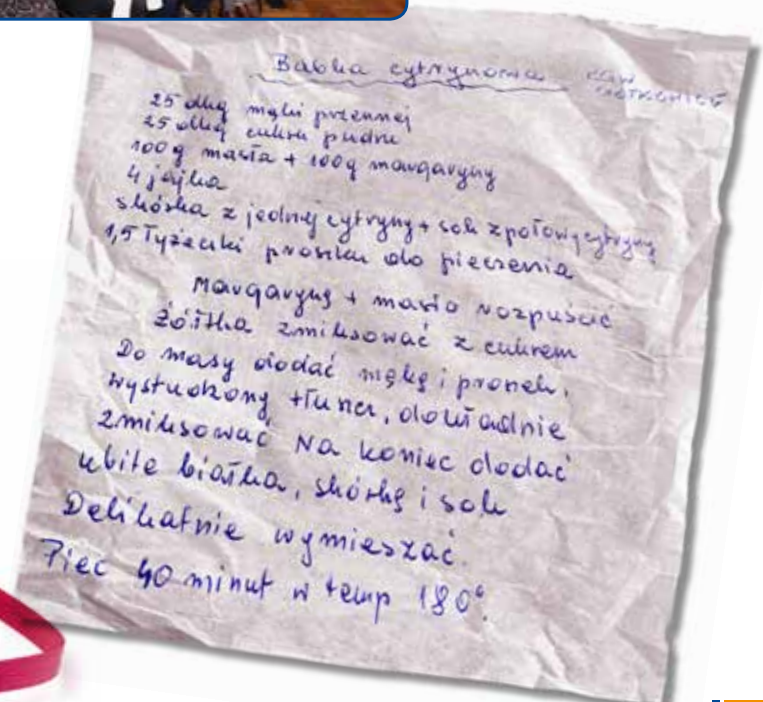 Babka cytrynowa
25 dkg mąki pszennej
25 dkg cukru pudru
100g masła + 100g margaryny
4 jajka
skórka z jednej cytryny + sok z połowy cytryny
1,5 łyżeczki proszku do pieczenia
Margarynę + masło rozpuścić
Żółtka zmiksować z cukrem
Do masy dodać mąkę i proszek,
wystudzony tłuszcz, dokładnie
zmiksować Na koniec dodać
ubite białka, skórkę i sok
Delikatnie wymieszać.
Piec 40 minut w temp 180°.